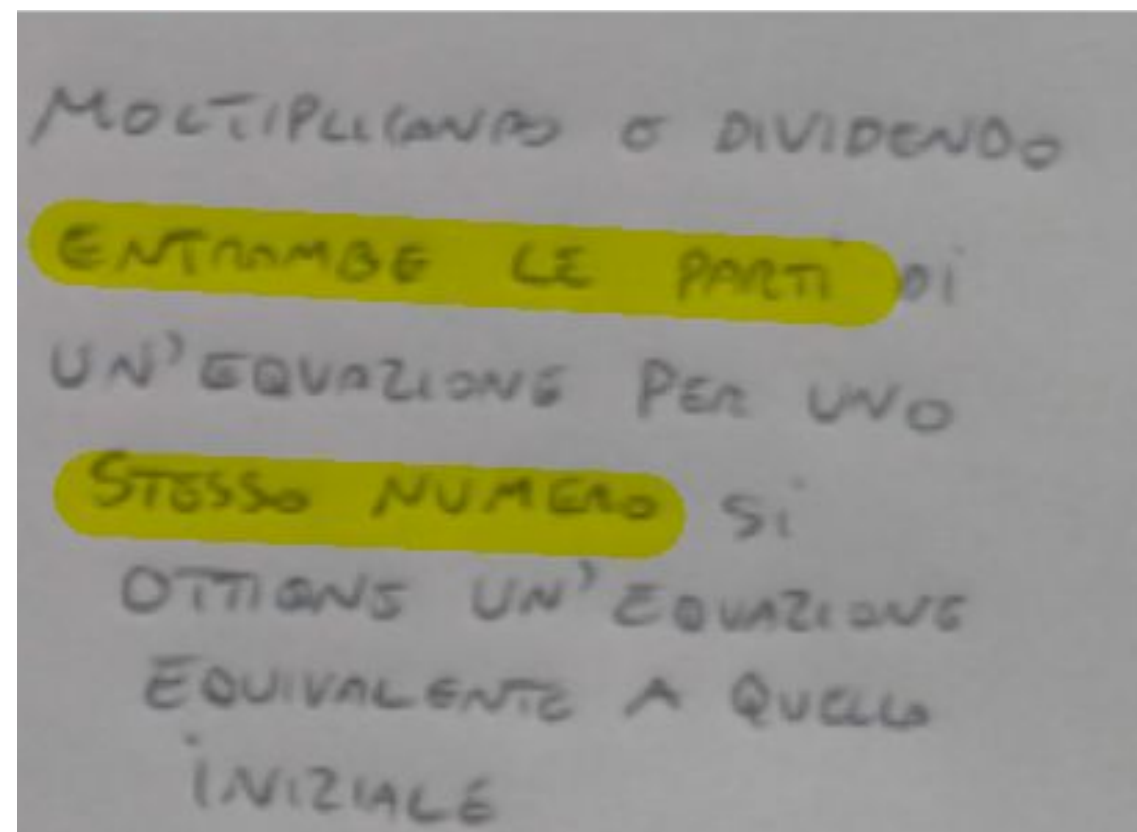 MOLTIPLICANDO O DIVIDENDO
ENTRAMBE LE PARTI DI
UN'EQUAZIONE PER UNO
STESSO NUMERO SI
OTTIENE UN'EQUAZIONE
EQUIVALENTE A QUELLO
INIZIALE